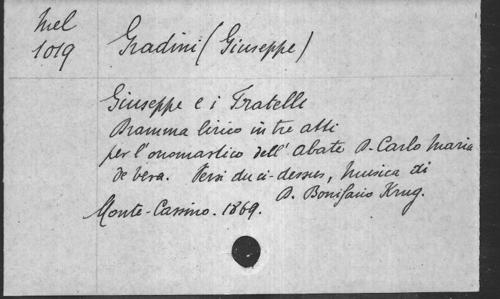 Mel
1019
Gradini (Giuseppe)
Giuseppe e i Fratelli
Dramma lirico in tre atti
per l'onomastico dell' Abate D. Carlo Maria
de Vera. Versi du ci-dessus, musica di
D. Bonifacio Krug.
Monte-Cassino. 1869.